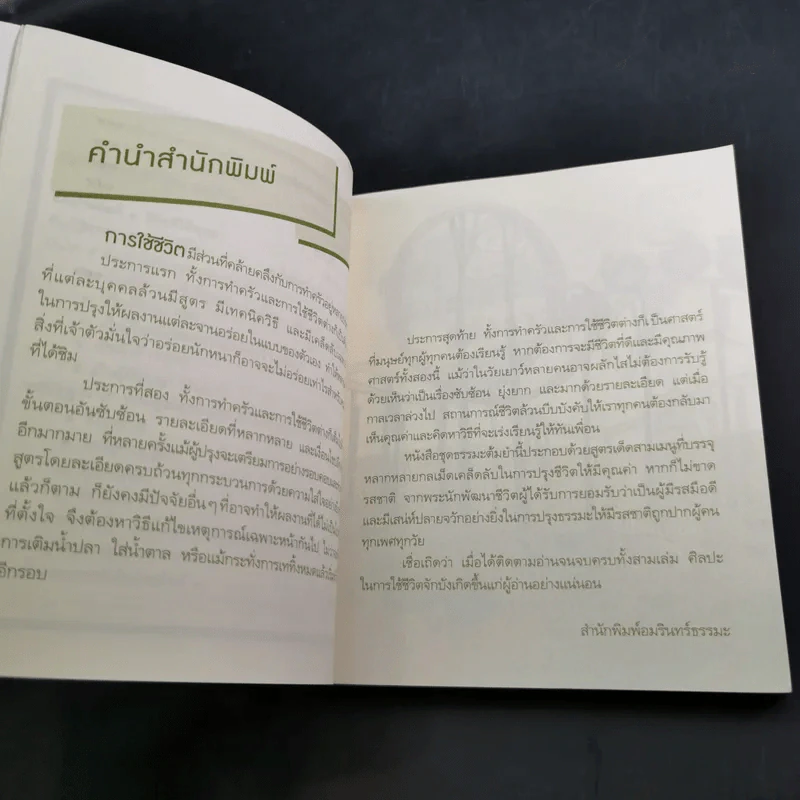 คำนำสำนักพิมพ์
การใช้ชีวิต มีส่วนที่คล้ายคลึงกับการทำครัวอยู่
ประการแรก ทั้งการทำครัวและการใช้ชีวิตต่าง
ที่แต่ละบุคคลล้วนมีสูตร มีเทคนิควิธี และมีเคล็ดลับ
ในการปรุงให้ผลงานแต่ละจานอร่อยในแบบของตัวเอง
สิ่งที่เจ้าตัวมั่นใจว่าอร่อยนักหนาก็อาจจะไม่อร่อยเท่าไรสำหรับ
ที่ได้ชิม
ประการที่สอง ทั้งการทำครัวและการใช้ชีวิต
ขั้นตอนอันซับซ้อน รายละเอียดที่หลากหลาย และเงื่อนไข
อีกมากมาย ที่หลายครั้งแม้ผู้ปรุงจะเตรียมการอย่างรอบคอบ
สูตรโดยละเอียดครบถ้วนทุกกระบวนการด้วยความใส่ใจ
แล้วก็ตาม ก็ยังคงมีปัจจัยอื่นๆ ที่อาจทำให้ผลงานที่ได้ไม่เป็น
ที่ตั้งใจ จึงต้องหาวิธีแก้ไขเหตุการณ์เฉพาะหน้ากันไป
การเติมน้ำปลา ใส่น้ำตาล หรือแม้กระทั่งการเททิ้งหมดแล้ว
อีกรอบ
ประการสุดท้าย ทั้งการทำครัวและการใช้ชีวิตต่างก็เป็นศาสตร์
ที่มนุษย์ทุกผู้ทุกคนต้องเรียนรู้ หากต้องการจะมีชีวิตที่ดีและมีคุณภาพ
ศาสตร์ทั้งสองนี้ แม้ว่าในวัยเยาว์หลายคนอาจผลักไสไม่ต้องการรับรู้
ด้วยเห็นว่าเป็นเรื่องซับซ้อน ยุ่งยาก และมากด้วยรายละเอียด แต่เมื่อ
กาลเวลาล่วงไป สถานการณ์ชีวิตล้วนบีบบังคับให้เราทุกคนต้องกลับมา
เห็นคุณค่าและคิดหาวิธีที่จะเร่งเรียนรู้ให้ทันเพื่อน
หนังสือชุดธรรมะต้มยำนี้ประกอบด้วยสูตรเด็ดสามเมนูที่บรรจุ
หลากหลายกลเม็ดเคล็ดลับในการปรุงชีวิตให้มีคุณค่า หากก็ไม่ขาด
รสชาติ จากพระนักพัฒนาชีวิตผู้ได้รับการยอมรับว่าเป็นผู้มีรสมือดี
และมีเสน่ห์ปลายจวักอย่างยิ่งในการปรุงธรรมะให้มีรสชาติถูกปากผู้คน
ทุกเพศทุกวัย
เชื่อเถิดว่า เมื่อได้ติดตามอ่านจนจบครบทั้งสามเล่ม ศิลปะ
ในการใช้ชีวิตจักบังเกิดขึ้นแก่ผู้อ่านอย่างแน่นอน
สำนักพิมพ์อมรินทร์ธรรมะ